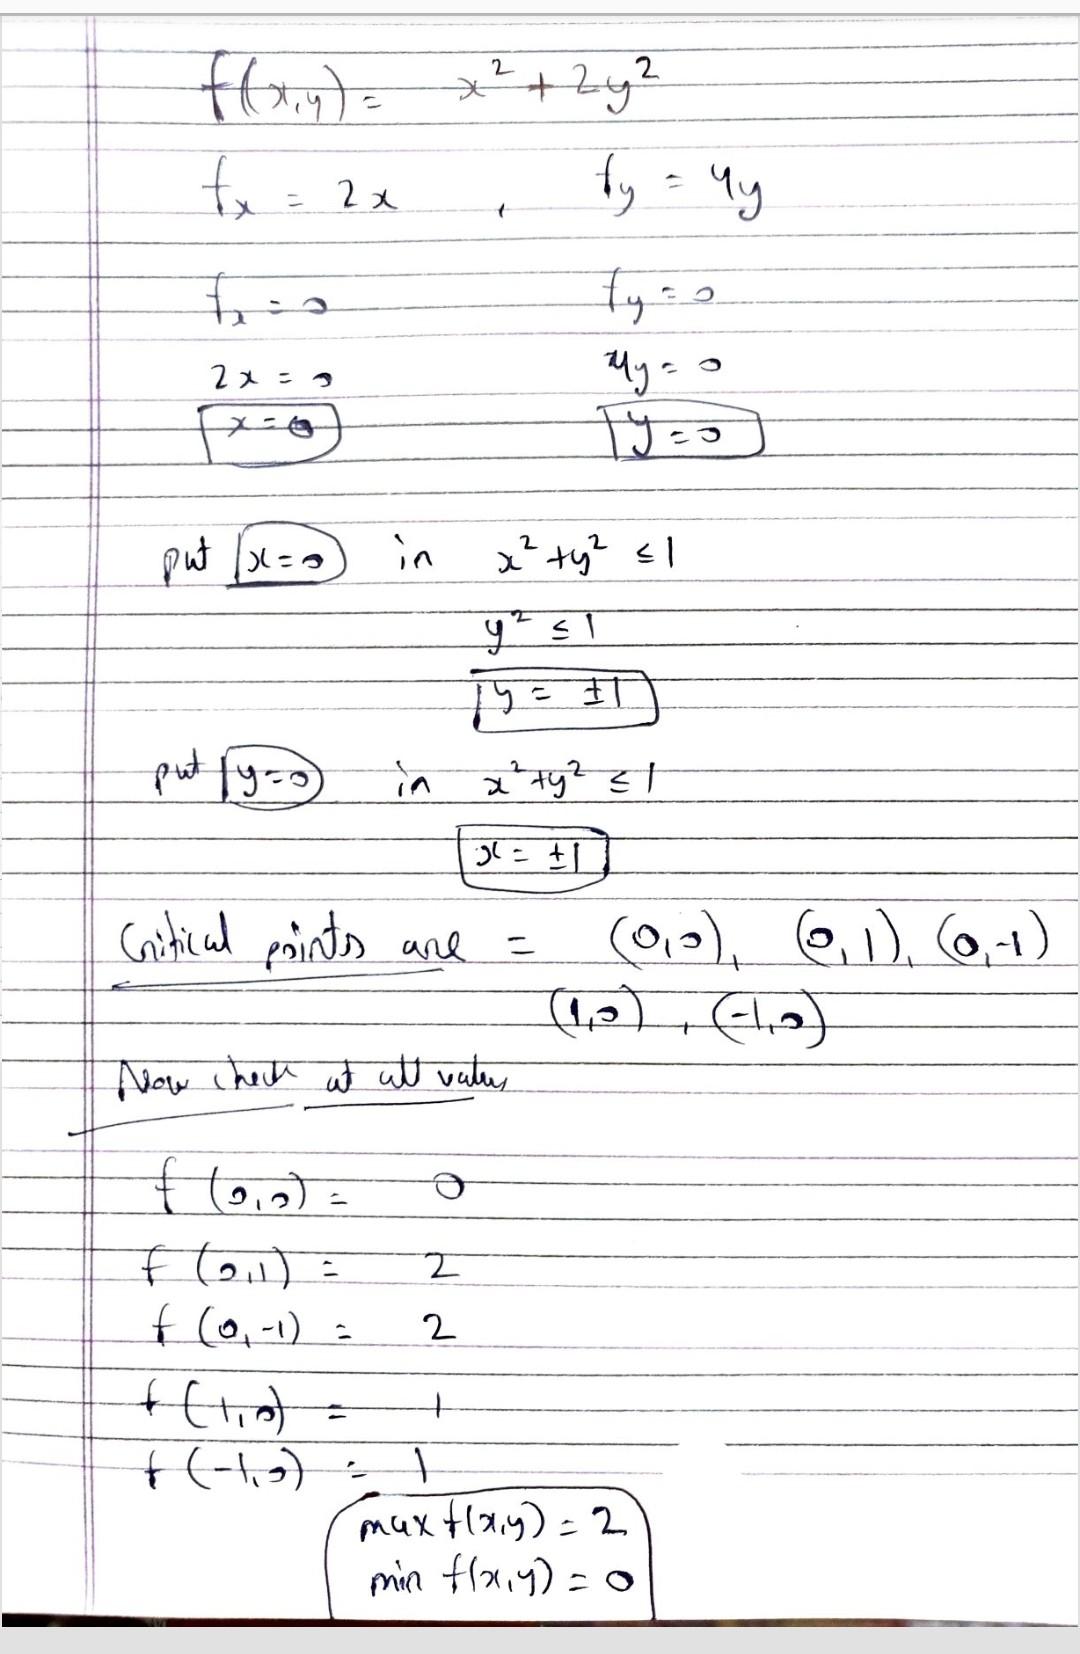 f(x,y) = x² + 2y²
fx = 2x , fy = 4y
fx = 0 fy = 0
2x = 0 4y = 0
x = 0 y = 0
put x=0 in x² + y² ≤ 1
y² ≤ 1
y = ±1
put y=0 in x² + y² ≤ 1
x = ±1
Critical points are = (0,0), (0,1), (0,-1)
(1,0) , (-1,0)
Now check at all values
f (0,0) = 0
f (0,1) = 2
f (0,-1) = 2
f (1,0) = 1
f (-1,0) = 1
max f(x,y) = 2
min f(x,y) = 0